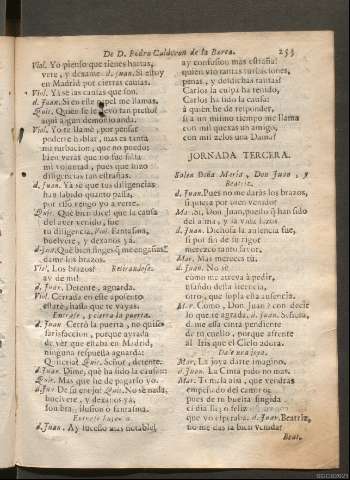 De D. Pedro Calderon de la Barca. 253
Viol. Yo pienso que tienes hartas,
vete, y dexame. d. Juan. Si estoy
en Madrid por ciertas causas.
Viol. Ya sè las causas que son.
d. Juan. Si en este papel me llamas.
Quit. Quien se le
aqui algun demonio anda.
Viol. Yo te llamè, por pensar
poderte hablar, mas es tanta
mi turbacion, que no puedo;
bien veras que no fue falta
mi voluntad, pues que hizo
diligencias tan estrañas.
d. Juan. Ya sè que tus diligencias
han sabido quanto passa,
por esso vengo yo a verte.
Quit. Què bien dize! que la causa
del aver venido, fue
tu diligencia. Viol. Fantasma,
buelvete, y dexanos ya.
d. Jua. Què bien finges, q̃ me engañas!
dame los brazos.
Viol. Los brazos? Retirandose.
ay de mi!
d. Juan. Detente, aguarda.
Viol. Cerrada en este aposento
estarè, hasta que te vayas.
Entrase, y cierra la puerta.
d. Juan. Cerrò la puerta, no quiso
satisfaccion, porque ayrada
de vèr que estaba en Madrid,
ninguna respuesta aguarda:
Quiterial Quit. Señor, detente.
d. Juan. Dime, què ha sido la causa?
Quit. Mas que he de pagarlo yo.
d. Jua. De su enojo? Quit. No sè nada,
buelvete, y dexanos ya,
sombra, ilusion o fantasma.
Entrase
d. Juan. Ay sucesso mas notable!
ay confusion mas estraña!
quien vio tantas turbaciones,
penas, y desdichas tantas!
Carlos la culpa ha tenido,
Carlos ha sido la causa:
à quien he de responder,
si a un mismo tiempo me llama
con mil quexas un amigo,
con mil zelos una Dama?
JORNADA TERCERA.
Salen Doña Maria, Don Juan, y
Beatriz.
d. Juan. Pues no me daràs los brazos,
si quiera por bien venido?
Mar. Si, Don Juan, puesto q̃ han sido
del alma, y la vida lazos.
d. Juan. Dichosa la ausencia fue,
si por fin de su rigor
merezco tanto favor.
Mar. Mas mereces tu.
d. Juan. No sè
como me atreva à pedir,
usando desta licencia,
otro, que supla essa ausencia.
Mar. Como, Don Juan? con decir
lo que te agrada. d. Juan. Señora,
d me essa cinta pendiente
de tu cuello, porque afrente
al Iris que el Cielo adora.
Dale una joya.
Mar. La joya darte imagino.
d. Juan. La Cinta pido no mas.
Mar. Tomala assi, que vendràs
empeñado del camino;
pues de tu buelta fingida
el dia feliz
que yo esperaba. d. Juan. Beatriz,
no me das la bien venida?
Beat.